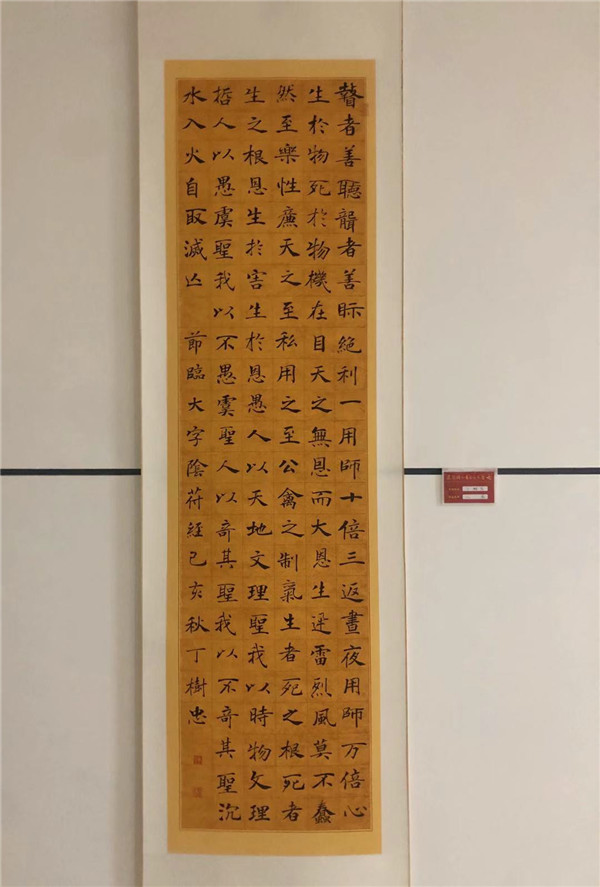 瞽者善聽聾者善眎絕利一用師十倍三返晝夜用師万倍心
生於物死於物機在目天之無恩而大恩生迅雷烈風莫不蠢
然至樂性廉天之至私用之至公禽之制氣生者死之根死者
生之根恩生於害生於恩愚人以天地文理聖我以時物文理
哲人以愚虞聖我以不愚虞聖人以奇其聖我以不奇其聖沉
水入火自取滅亾 節臨大字陰苻經己亥秋丁樹忠